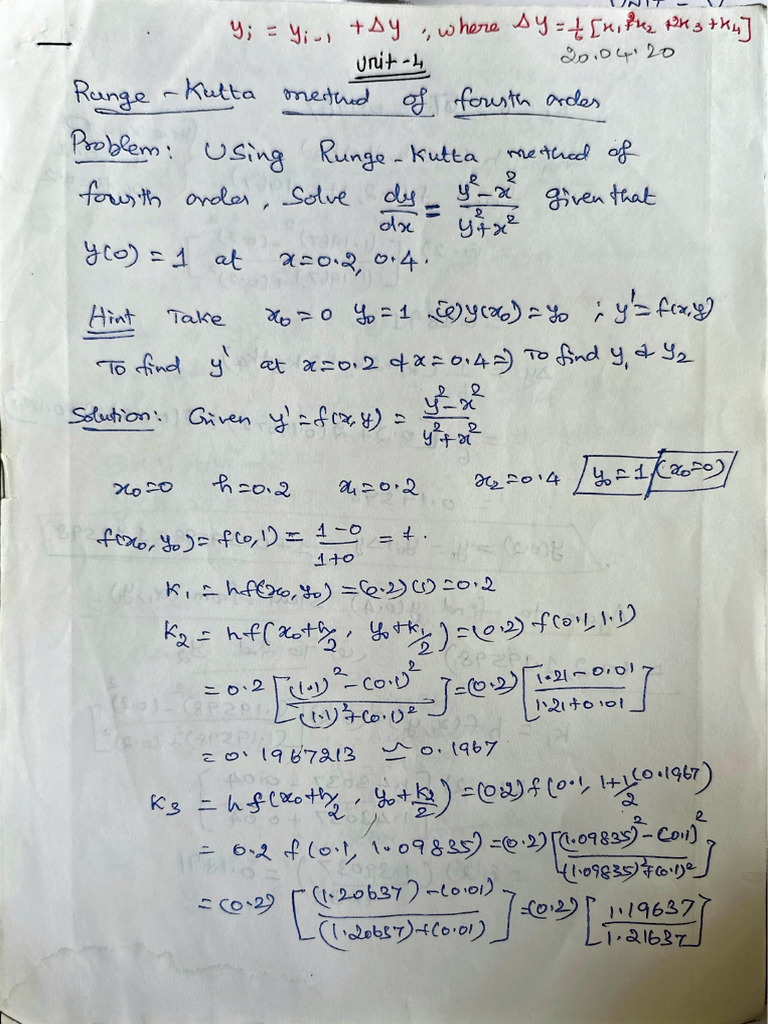 UNIT - V
yᵢ = yᵢ₋₁ + Δy , where Δy = 1/6 [K₁+2K₂+2K₃+K₄]
20.04.20
Unit-4
Runge-Kutta method of fourth order
Problem: Using Runge-Kutta method of
fourth order, Solve dy/dx = (y²-x²)/(y²+x²) given that
y(0) = 1 at x=0.2, 0.4.
Hint Take x₀=0 y₀=1 (ie) y(x₀)=y₀ ; y'=f(x,y)
To find y' at x=0.2 & x=0.4 ⇒ To find y₁ & y₂
Solution: Given y'=f(x,y) = (y²-x²)/(y²+x²)
x₀=0 h=0.2 x₁=0.2 x₂=0.4 y₀=1 (x₀=0)
f(x₀,y₀)=f(0,1)= (1-0)/(1+0) = 1.
K₁ = hf(x₀,y₀)=(0.2)(1)=0.2
K₂ = hf(x₀+h/2, y₀+K₁/2)=(0.2) f(0.1,1.1)
= 0.2 [((1.1)²-(0.1)²)/((1.1)²+(0.1)²)]=(0.2)[(1.21-0.01)/(1.21+0.01)]
= 0.1967213 ≃ 0.1967
K₃ = hf(x₀+h/2, y₀+K₂/2)=(0.2) f(0.1, 1+1/2(0.1967)
= 0.2 f(0.1, 1.09835)=(0.2)[((1.09835)²-(0.1)²)/((1.09835)²+(0.1)²)]
=(0.2) [((1.20637)-(0.01))/((1.20637)+(0.01))]=(0.2)[1.19637/1.21637]